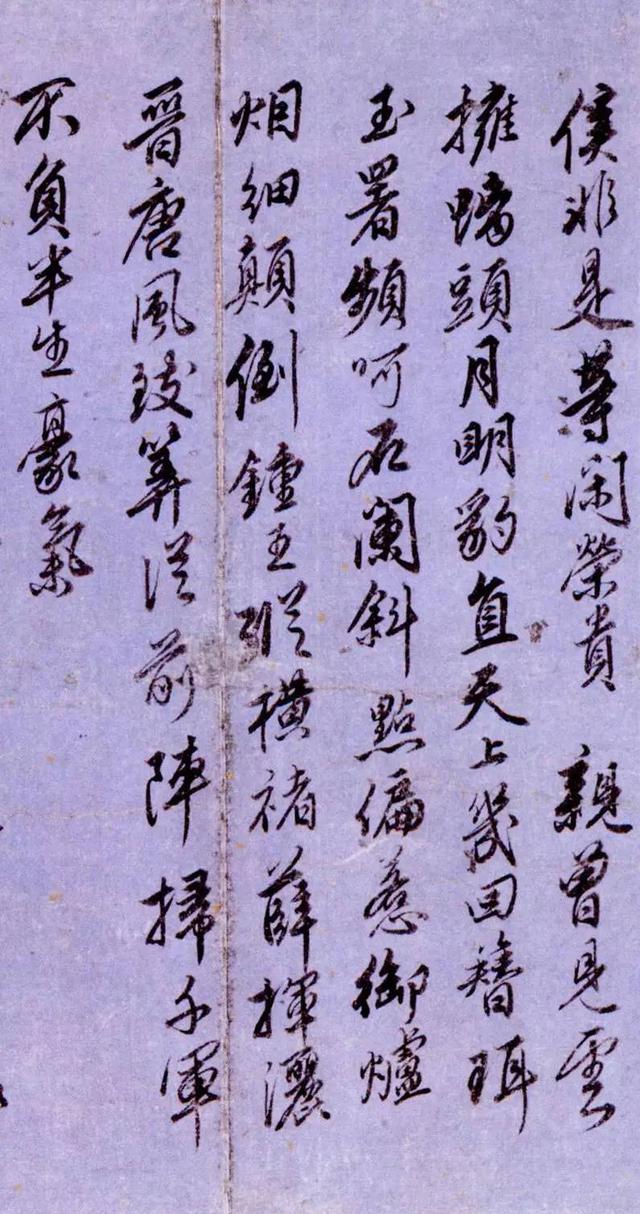 侯非是等閑榮貴 親曾見雲
擁螭頭月明豹直天上幾回簪珥
玉署頻呵石闌斜點偏惹御爐
烟細顛倒鍾王縱橫褚薛揮灑
晉唐風致筭從前陣掃千軍
不負半生豪氣